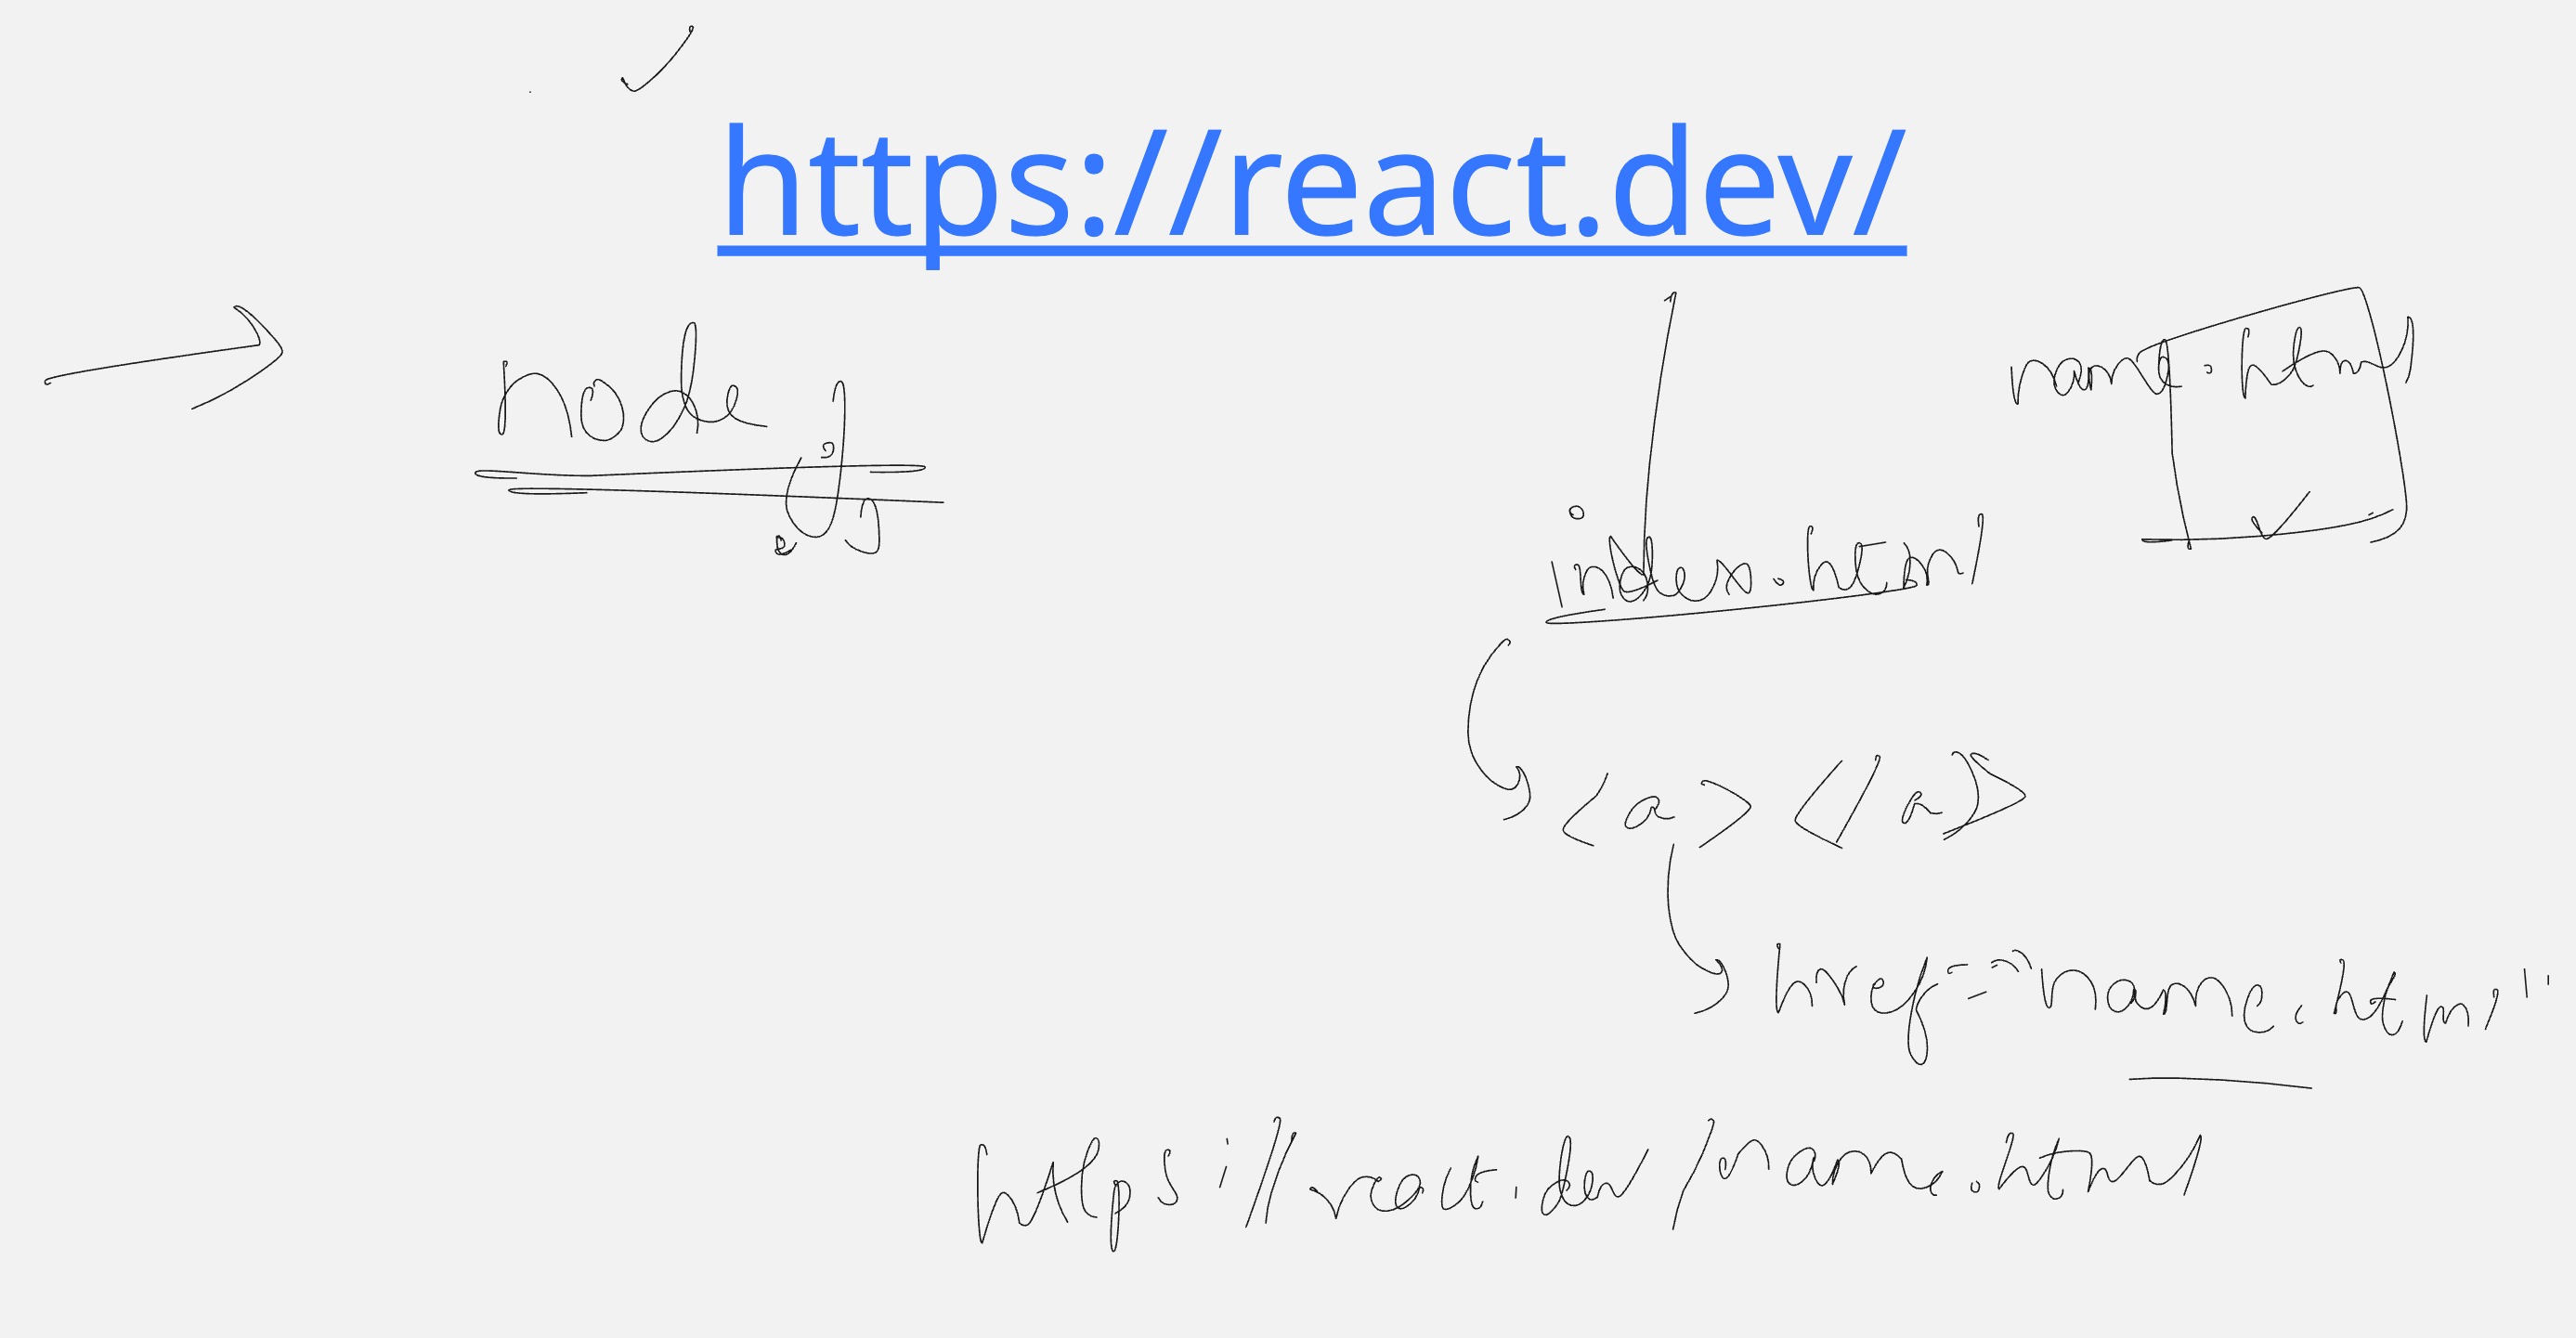 https://react.dev/
node js
name.html
index.html
<a></a>
href="name.html"
https://react.dev/name.html